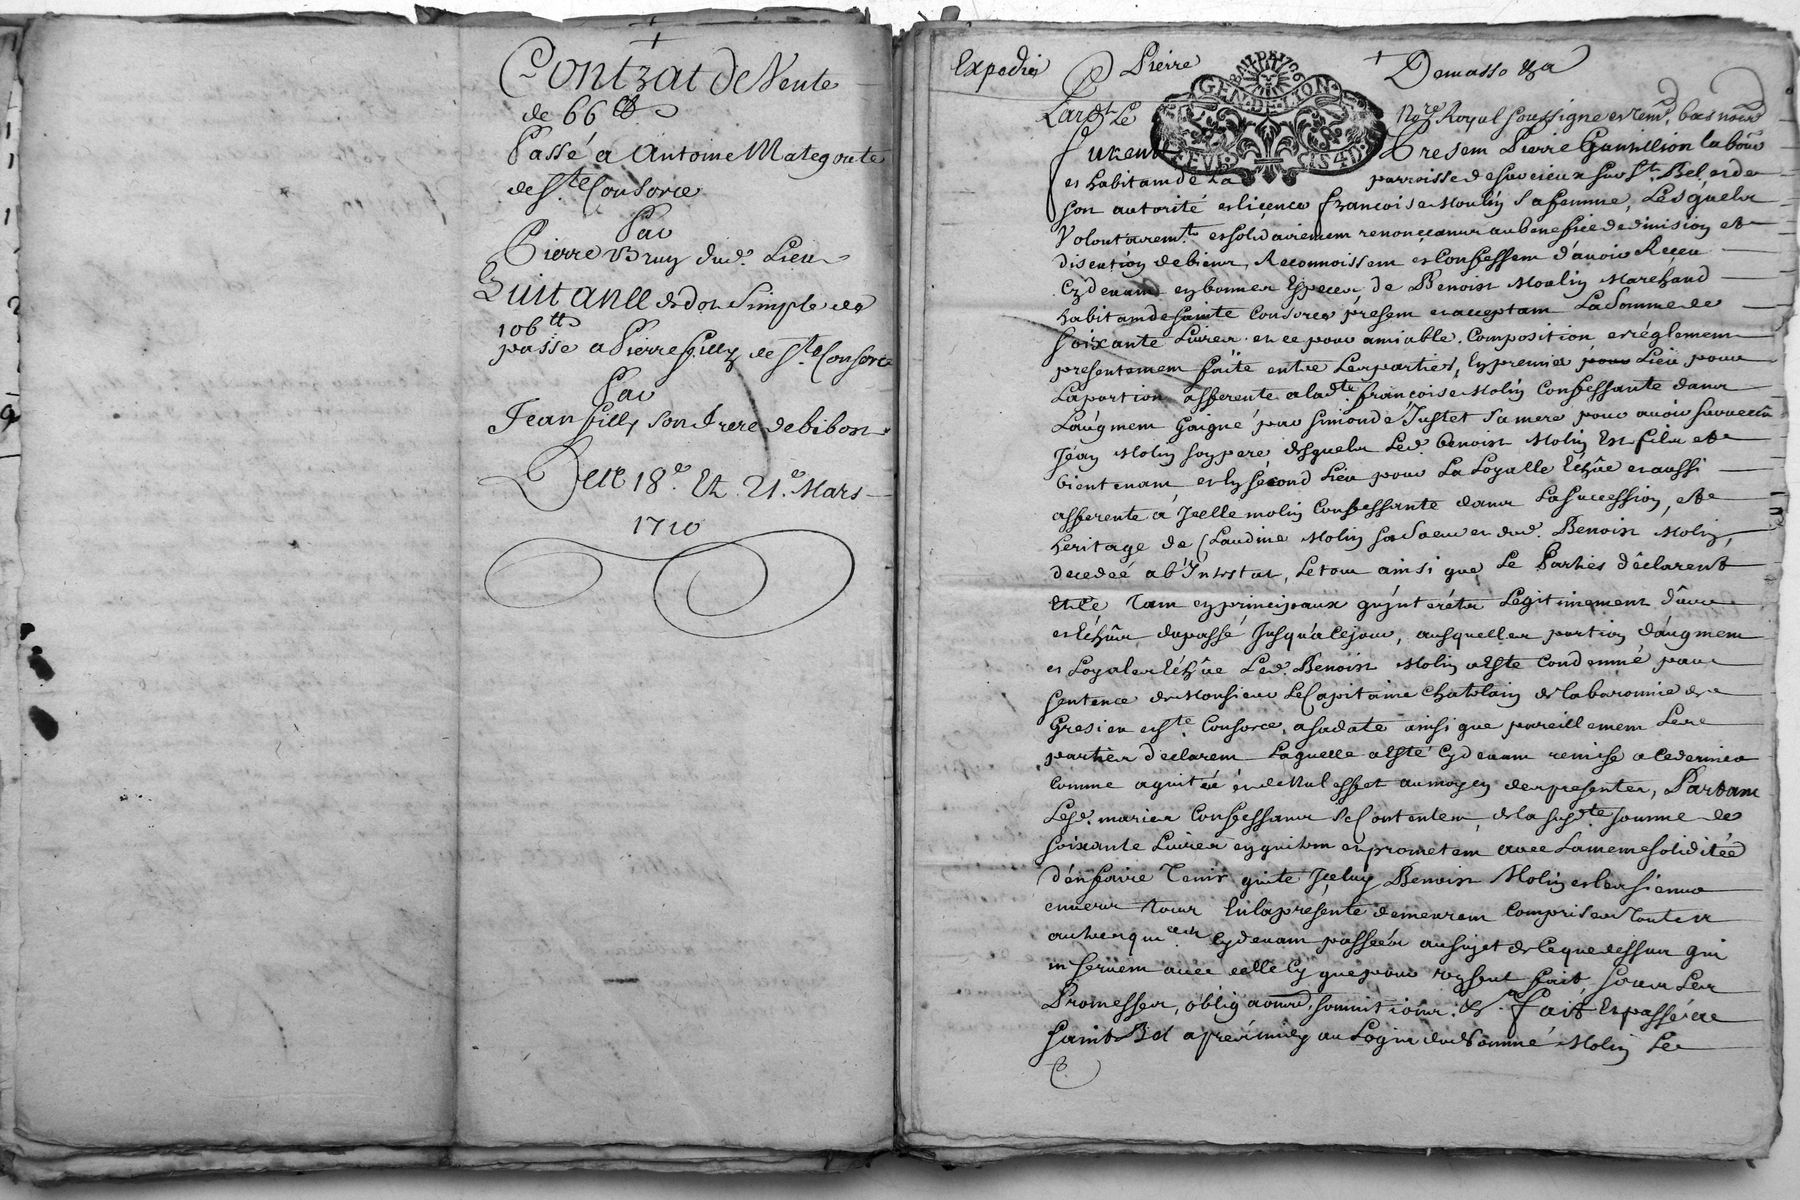 Contrat de Vente
de 66 tt
Passé a Antoine Mategoute
de Ste Consorce
Par
Pierre Bruy dud. Lieu
Quitance dedot Simple de
106 tt
passé a Pierre Gilly de Ste Consorce
Par
Jean Gilly son frere de bibost
Des 18e Et 21e Mars
1710
Expedié
Pierre Demasso
GEN·DE·LION
Pardt Le Nore Royal soussigne et bas
furent Present Pierre labour
et habitant de La parroisse de savieux sur St. Bel et de
son autorité et licence françoise Moulin sa femme, Lesquelx
Volontairemt. et solidairement renonceant au benefice de division et
discution de biens, Reconnoissent et Confessent d'avoir Receu
Cydevant en bonnes Especes, de Benoist Moulin Marchand
habitant de sainte Consorce présent et acceptant La Somme de
soixante Livres et ce pour amiable Composition et réglement
presentement faite entre Les parties, En premier pour Lieu pour
La portion afferente a ladte françoise Molin Confessante dans
L'augment gaigné par Simonde Justet sa mere pour avoir survecu
Jean Molin son pere desquelx Led. Benoist Molin Est filx et
bientenant et En second Lieu pour La Loyalle Echûe et aussi
afferente à Jcelle molin Confessante dans La succession, et
heritage de Claudine Molin sa Soeur et dud. Benoist Molin,
decedeé ab Intestat, Le tout ainsi que Le Parties déclarent
Et Ce Tant en principaux qu'jnterétx Legitimement dûs
et Echûs du passé Jusqu'a ce jour, ausquelles portion d'augment
et Loyales Echûe Led. Benoist Molin a Esté Condemné par
Sentence de Monsieur Le Capitaine Chatelain de la baronnie de
Gresieu et Ste Consorce, a sa date ainsi que pareillement Les
parties declarent Laquelle a Esté Cydevant remise a ce dernier
Comme aquitée et de Nul effet au moyen des presentes, Partant
Lesd. mariex Confessants Se Contentent de la susdte somme de
soixante Livres en quittent et prometent avec La meme solidité
d'en faire Tenir quite Jceluy Benoist Molin et les siens
envers Tous En la presente demeurent Comprises Toutes
autres Cydevant passées au sujet de Ce que dessus qui
ne servent avec celle Cy que pour un seul fait, sous Les
Promesses, oblig soumitions. &c. fait Et passé a
saint Bel apres midy au Logis du nommé Molin Le